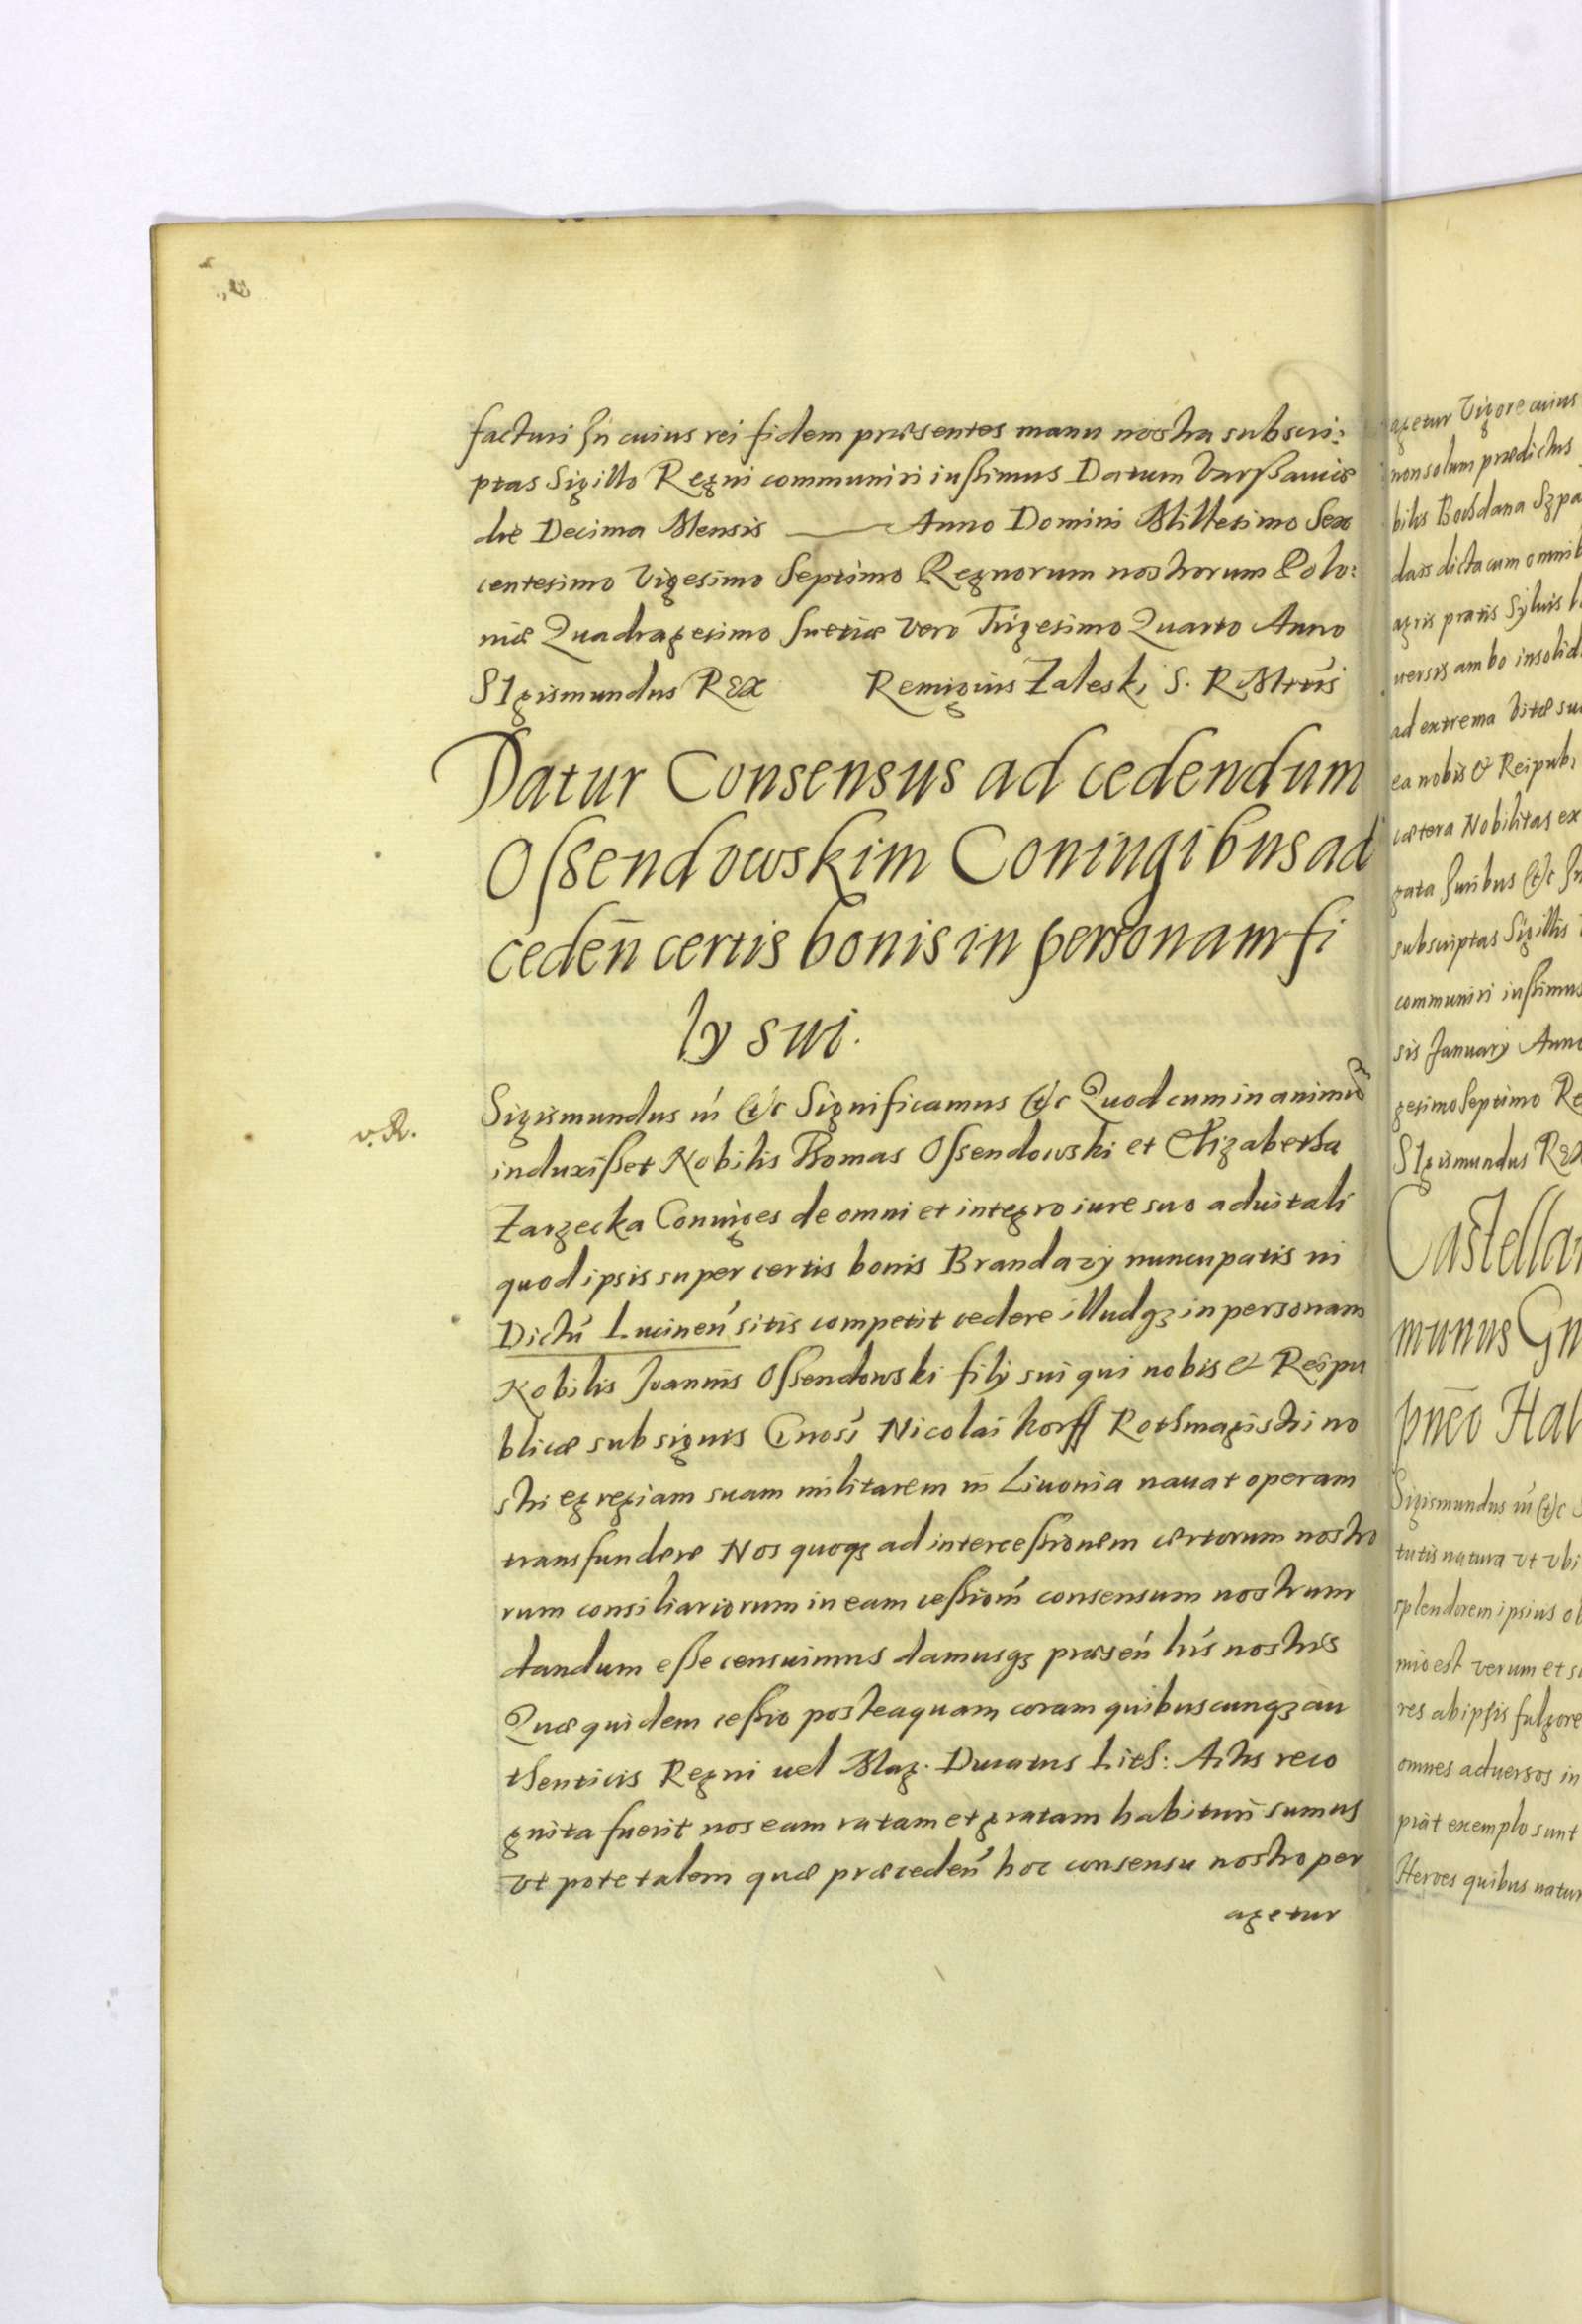 facturi In cuius rei fidem præsentes manu nostra subscri:
ptas Sigillo Regni communiri iussimus Datum Varssauiæ
die Decima Mensis —— Anno Domini Millesimo Sex
centesimo Vigesimo Septimo Regnorum nostrorum Polo:
niæ Quadragesimo Suetiæ vero Trigesimo Quarto Anno
SIgismundus REX Remigius Zaleski S. R Mtrus
Datur Consensus ad cedendum
Ossendowskim Coniugibus ad
ceden̄ certis bonis in personam fi
ly sui.
v. R.
Sigismundus iii &c Significamus &c Quod cum in animū
induxisset Nobilis Thomas Ossendowski et Elizabetha
Zarzecka Coniuges de omni et integro iure suo aduitali
quod ipsis super certis bonis Brandazy nuncupatis in
Dictū Lucinen̄ sitis competit cedere illudqz in personam
Nobilis Joannis Ossendowski fily sui qui nobis & Reipu
blicæ sub signis Gnosi Nicolai Korff Rothmagistri no
stri egregiam suam militarem in Liuonia nauat operam
transfundere Nos quoqz ad intercessionem certorum nostro
rum consiliariorum in eam cessionē consensum nostrum
dandum esse censuimus damusqz præsen̄ lrīs nostris
Quæ quidem cessio posteaquam coram quibuscunqz au
thenticis Regni uel Mag. Ducatus Lith: Actis reco
gnita fuerit nos eam ratam et gratam habituri sumus
vt pote talem quæ præceden̄ hoc consensu nostro per
agetur
agetur Vigore cuius
non solum prædictus
bilis Bohdana Szpa
dass dicta cum omnib
agris pratis Syluis l
uersis ambo insolid
ad extrema Vitæ su
ea nobis & Reipub
cætera Nobilitas ex
gata Iuribus &c In
subscriptas Sigillis
communiri iussimus
sis January Anno
gesimo Septimo Re
SIgismundus REX
Castellan
munus Gn
pneo Hal
Sigismundus iii &c
tutis natura vt vbi
splendorem ipsius ob
mio est verum et si
res ab ipsis fulgore
omnes aduersos in
piāt exemplo sunt
Heroes quibus natur